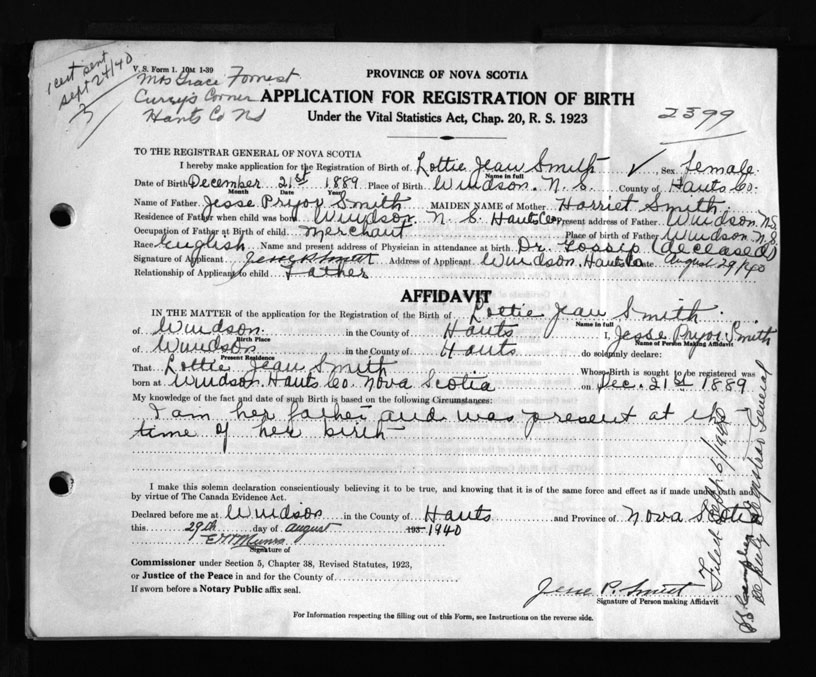 1 cert sent
Sept 24/40
V. S. Form 1. 10M 1-39
Mrs Grace Forrest
Curry's Corner
Hants Co NS
PROVINCE OF NOVA SCOTIA
APPLICATION FOR REGISTRATION OF BIRTH
2599
Under the Vital Statistics Act, Chap. 20, R. S. 1923
TO THE REGISTRAR GENERAL OF NOVA SCOTIA
I hereby make application for the Registration of Birth of Lottie Jean Smith ✓ Sex Female
Name in full
Date of Birth December 21st 1889 Place of Birth Windsor. N. S. County of Hants Co.
Month Date Year
Name of Father Jesse Pryor Smith MAIDEN NAME of Mother Harriet Smith
Residence of Father when child was born Windsor. N. S. Hants Co Present address of Father Windsor N.S.
Occupation of Father at Birth of child Merchant Place of birth of Father Windsor N.S.
Race English Name and present address of Physician in attendance at birth Dr. Gossip (deceased)
Signature of Applicant Jesse P. Smith Address of Applicant Windsor. Hants Co Date August 29/40
Relationship of Applicant to child Father
AFFIDAVIT
IN THE MATTER of the application for the Registration of the Birth of Lottie Jean Smith
Name in full
of Windsor in the County of Hants I, Jesse Pryor Smith
Birth Place Name of Person Making Affidavit
of Windsor in the County of Hants do solemnly declare:
Present Residence
That Lottie Jean Smith Whose Birth is sought to be registered was
born at Windsor Hants Co. Nova Scotia on Dec. 21st 1889
My knowledge of the fact and date of such Birth is based on the following Circumstances:
I am her father and was present at the
time of her birth
I make this solemn declaration conscientiously believing it to be true, and knowing that it is of the same force and effect as if made under oath and
by virtue of The Canada Evidence Act.
Declared before me at Windsor in the County of Hants and Province of Nova Scotia
this 29th day of August 193 1940
Signature of
Commissioner under Section 5, Chapter 38, Revised Statutes, 1923,
or Justice of the Peace in and for the County of
If sworn before a Notary Public affix seal.
Jesse P. Smith
Signature of Person making Affidavit
For Information respecting the filling out of this Form, see Instructions on the reverse side.
Filed Sept 6/1940
Deputy Registrar General